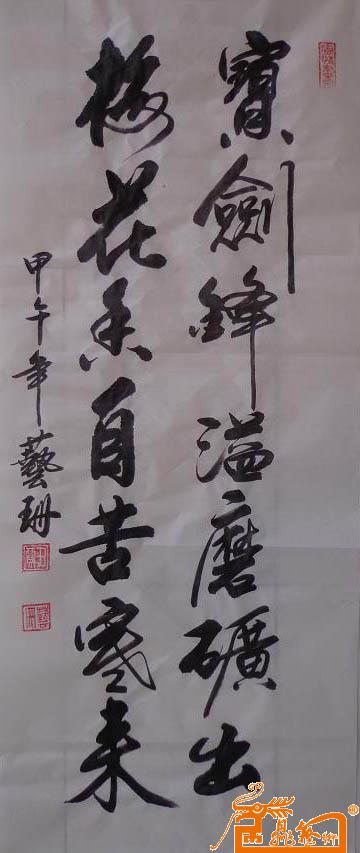 寶劍鋒溢磨礪出
梅花香自苦寒来
甲午年藝珊